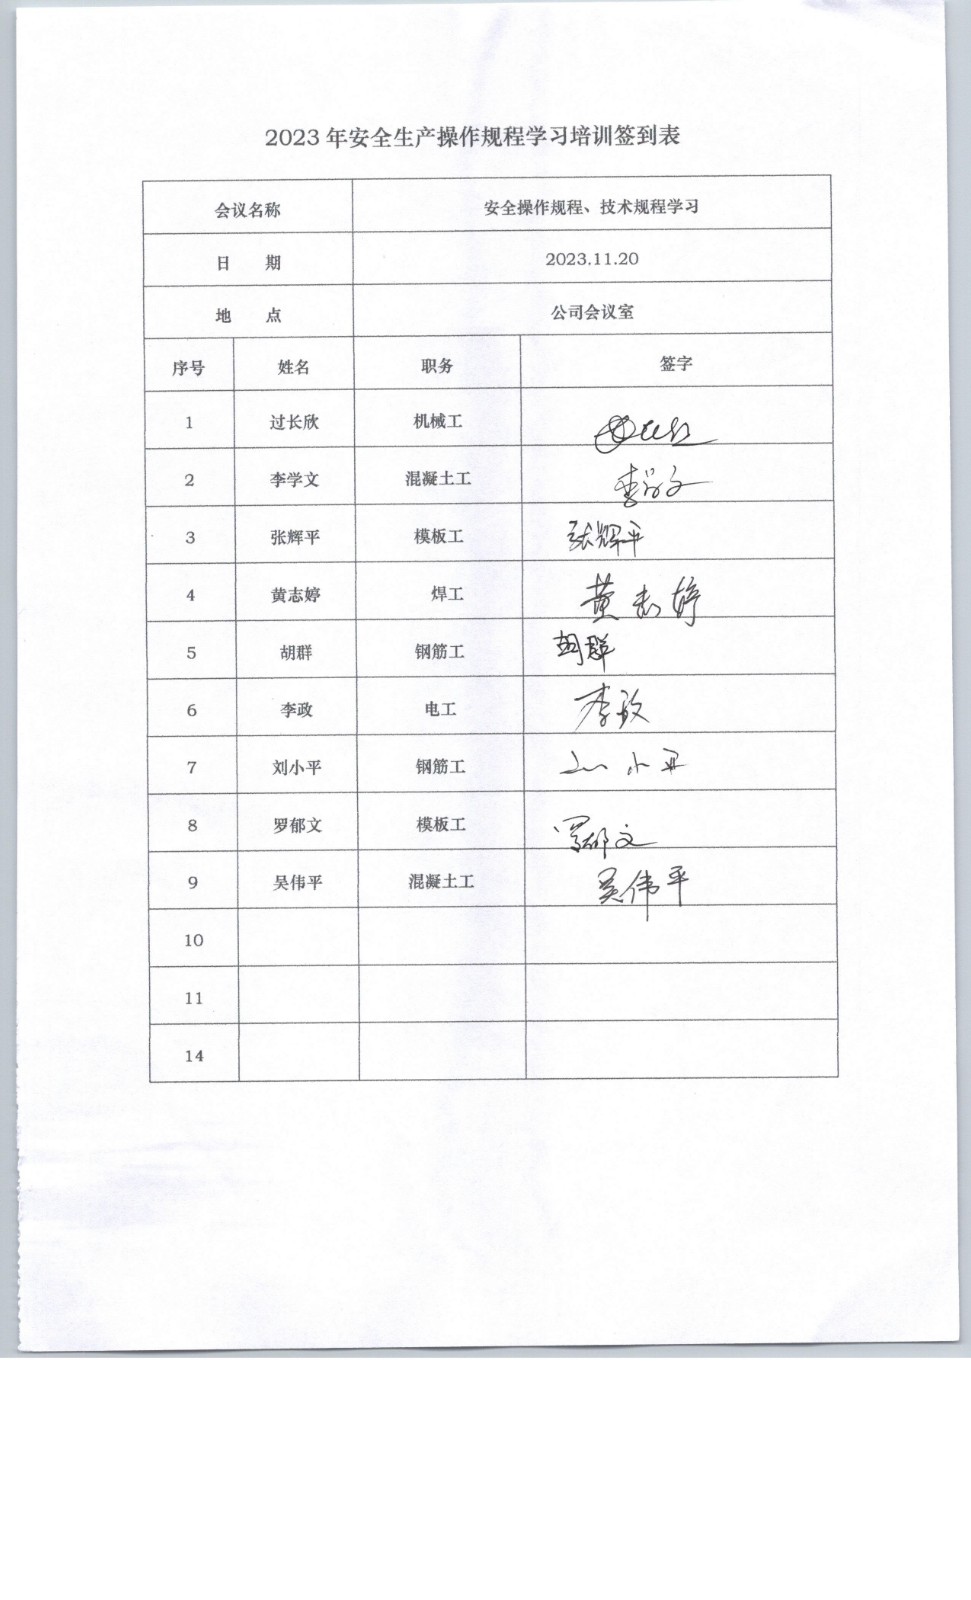 2023 年安全生产操作规程学习培训签到表
会议名称 安全操作规程、技术规程学习
日 期 2023.11.20
地 点 公司会议室
序号 姓名 职务 签字
1 过长欣 机械工
2 李学文 混凝土工 李学文
3 张辉平 模板工 张辉平
4 黄志婷 焊工 黄志婷
5 胡群 钢筋工 胡群
6 李政 电工 李政
7 刘小平 钢筋工 小平
8 罗郁文 模板工 罗郁文
9 吴伟平 混凝土工 吴伟平
10
11
14